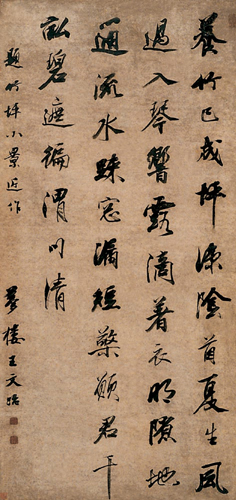 養竹已成坪涼陰首夏生風
過入琴響露滴著衣明隙地
通流水疎窓漏短檠願君千
畝碧遮徧渭川清
題竹坪小景近作
夢樓王文治